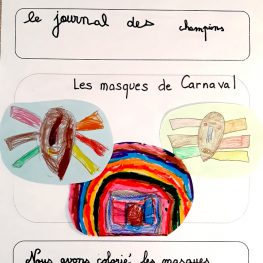 le journal des champions
Les masques de Carnaval
Nous avons colorié les masques